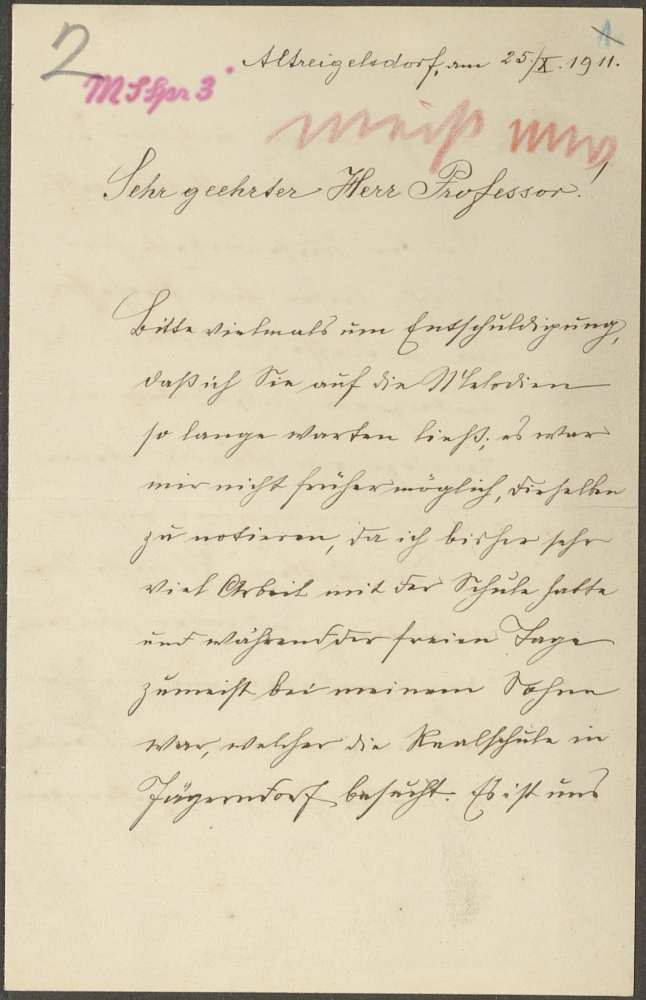 2
1.
MS Spr 3
Altreigelsdorf, am 25./X. 1911.
Sehr geehrter Herr Professor!
Bitte vielmals um Entschuldigung,
daß ich Sie auf die Melodien
so lange warten ließ; es war
mir nicht früher möglich, dieselben
zu notieren, da ich bisher sehr
viel Arbeit mit der Schule hatte
und während der freien Tage
zumeist bei meinem Sohne
war, welcher die Realschule in
Jägerndorf besucht. Es ist uns